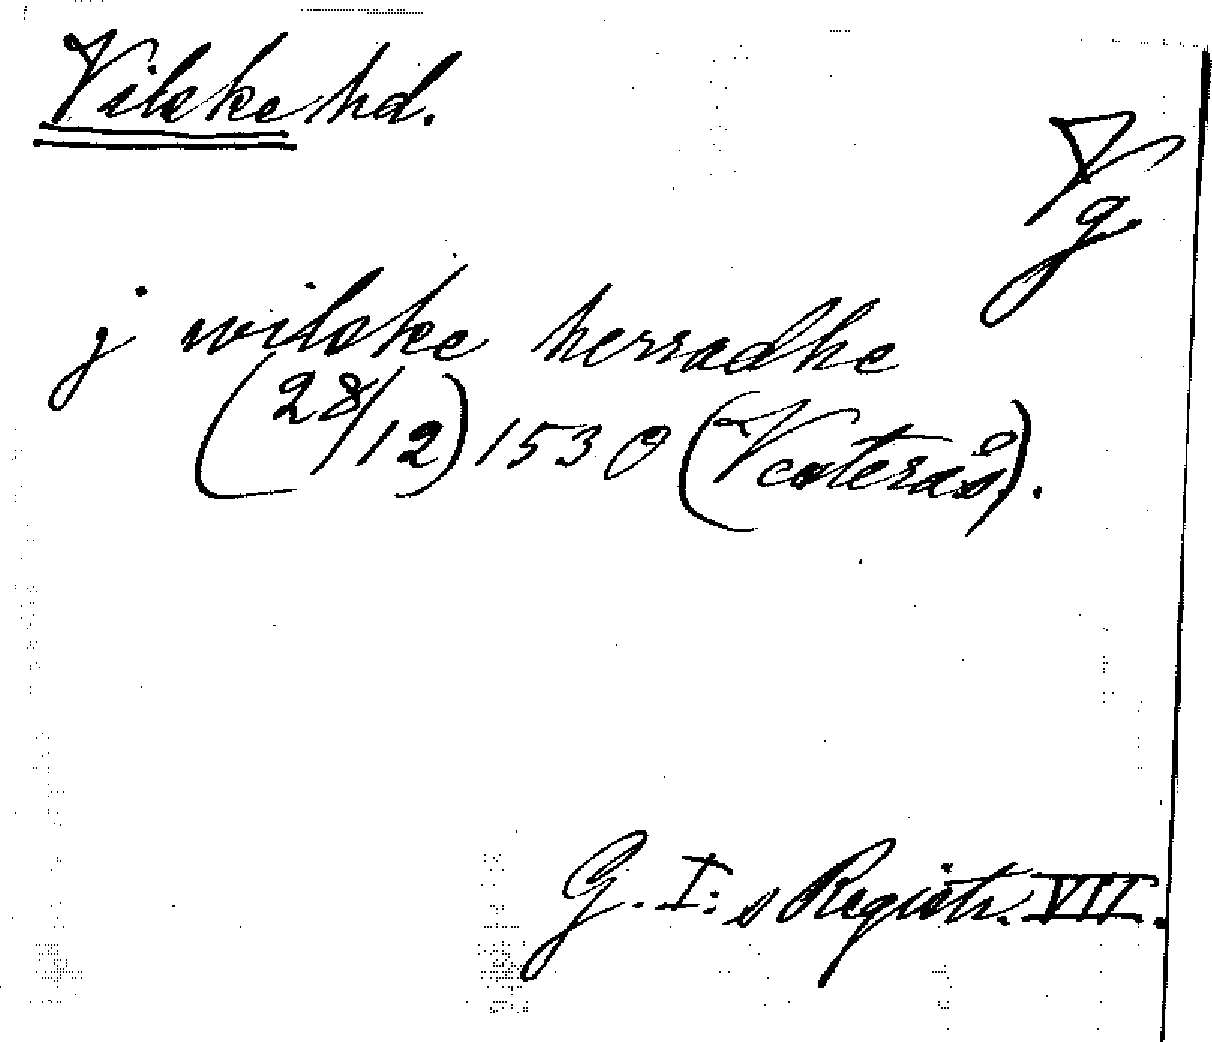 Vilske hd.
Vg
j wilske herradhe
(28/12) 1530 (Vesterås).
G. I:s Registr. VII.